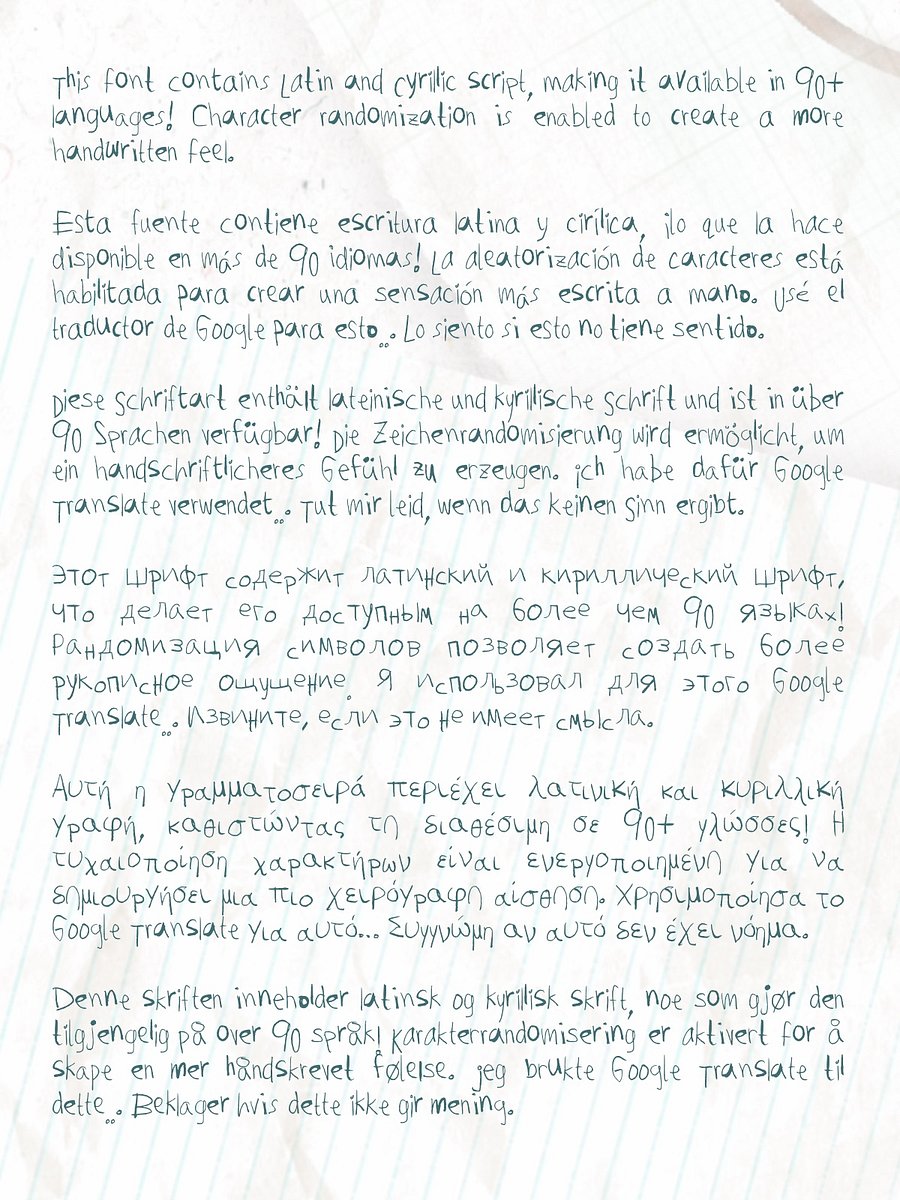 This font contains Latin and Cyrillic script, making it available in 90+
languages! Character randomization is enabled to create a more
handwritten feel.
Esta fuente contiene escritura latina y cirílica, ¡lo que la hace
disponible en más de 90 idiomas! La aleatorización de caracteres está
habilitada para crear una sensación más escrita a mano. Usé el
traductor de Google para esto... Lo siento si esto no tiene sentido.
Diese Schriftart enthält lateinische und kyrillische Schrift und ist in über
90 Sprachen verfügbar! Die Zeichenrandomisierung wird ermöglicht, um
ein handschriftlicheres Gefühl zu erzeugen. Ich habe dafür Google
Translate verwendet... Tut mir leid, wenn das keinen Sinn ergibt.
Этот шрифт содержит латинский и кириллический шрифт,
что делает его доступным на более чем 90 языках!
Рандомизация символов позволяет создать более
рукописное ощущение. Я использовал для этого Google
Translate... Извините, если это не имеет смысла.
Αυτή η γραμματοσειρά περιέχει λατινική και κυριλλική
γραφή, καθιστώντας τη διαθέσιμη σε 90+ γλώσσες! Η
τυχαιοποίηση χαρακτήρων είναι ενεργοποιημένη για να
δημιουργήσει μια πιο χειρόγραφη αίσθηση. Χρησιμοποίησα το
Google Translate για αυτό... Συγγνώμη αν αυτό δεν έχει νόημα.
Denne skriften inneholder latinsk og kyrillisk skrift, noe som gjør den
tilgjengelig på over 90 språk! Karakterrandomisering er aktivert for å
skape en mer håndskrevet følelse. Jeg brukte Google Translate til
dette... Beklager hvis dette ikke gir mening.